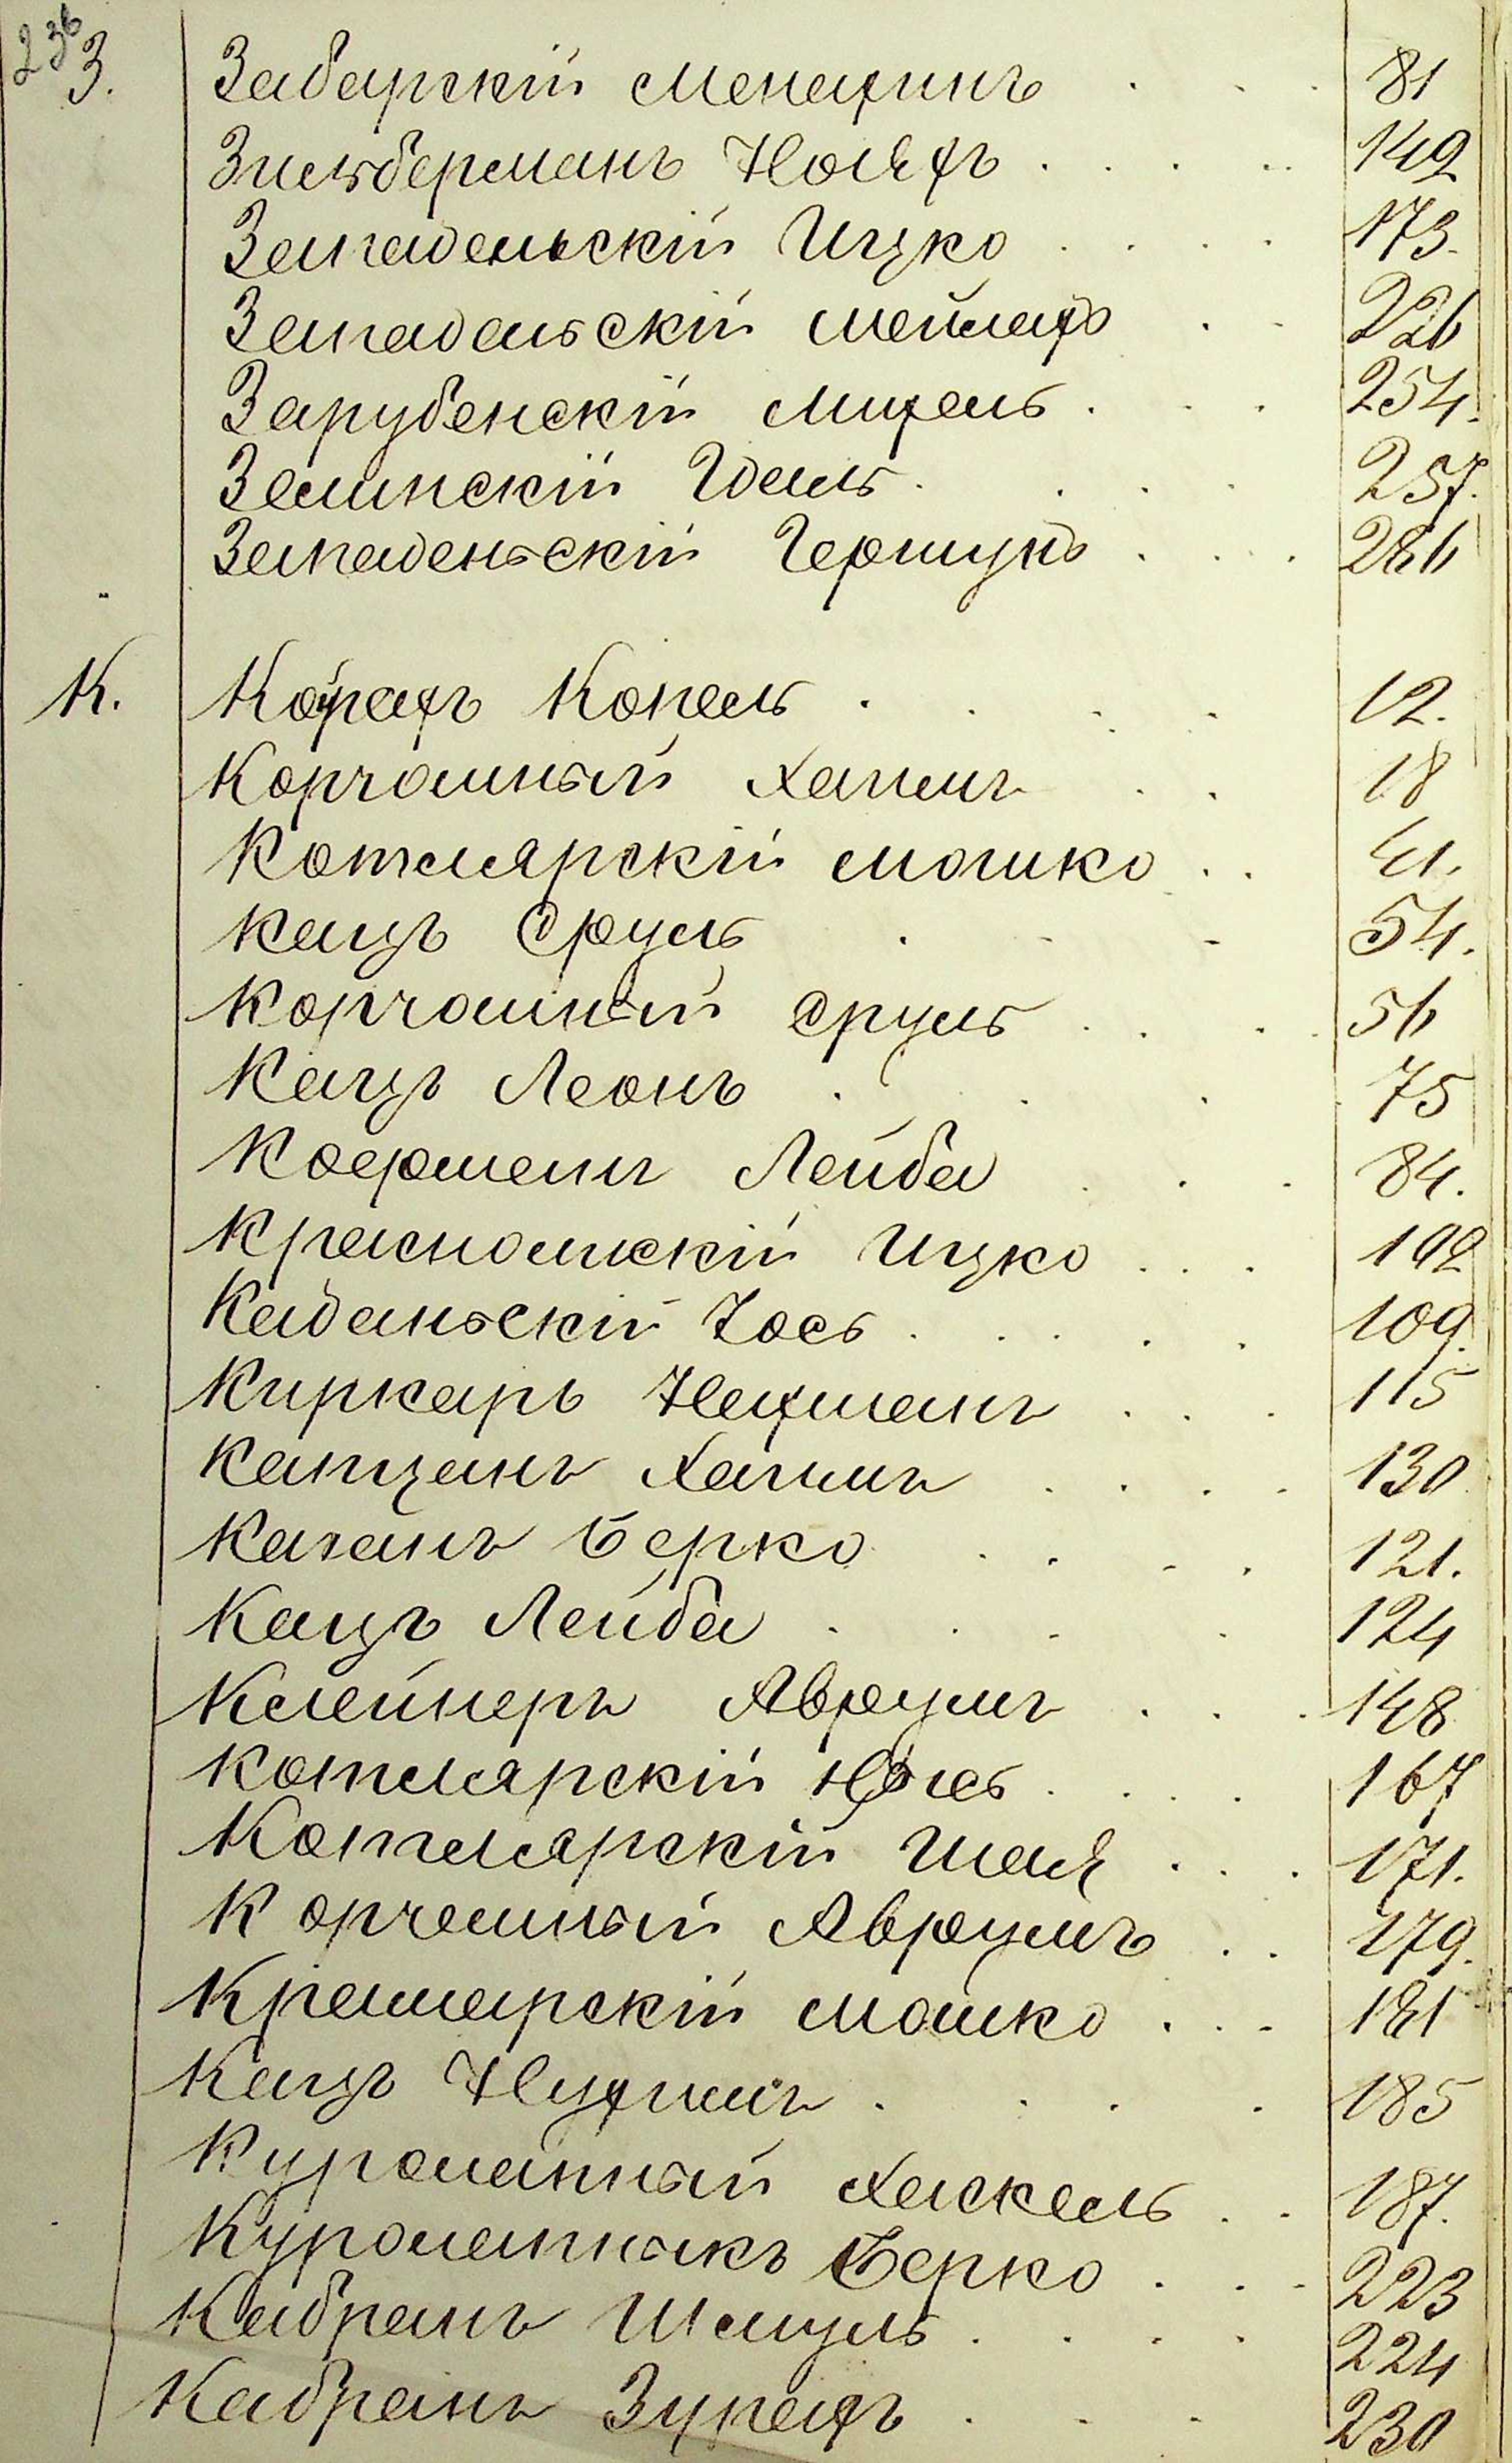 236
З. Забарскій Менахинъ . . . 81
Зильберманъ Нояхъ . . . . 149
Западеньскій Ицко . . . . 173.
Западеньскій Мейлахъ . . 226
Зарубенскій Михель . . . 254.
Зелинскій Идель . . . . 257.
Западеньскій Гершунъ . . . 286
К. Корахъ Копель . . . . 12.
Корчомный Хаимъ . . 18
Котлярскій Мошко . . 41.
Кацъ Сруль . . . 54.
Корчомный Сруль . . . 56
Кацъ Леонъ . . . 75
Лейба . . . 84.
Краснольскій Ицко . . . 102
Каданьскій Іось . . . . . 109.
Киркаръ Нахманъ . . . 115
Капцанъ Хаимъ . . . . 130
Казанъ Берко . . . . 121.
Кацъ Лейба . . . . 124
Клейнеръ Аврумъ . . . 148
Котлярскій . . . . 167
Котлярскій Шая . . . 171.
Корчемный Аврумъ . . 179.
Крамарскій Мошко . . . 181
Кацъ Нухимъ . . . . 185
Куропатный Хаскель . . 187.
Куропатныкъ Берко . . . 223
Кабранъ Шмуль . . . . 224
Кабранъ . . . 230